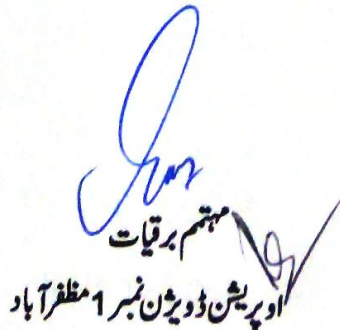 مہتمم برقیات
اوپریشن ڈویژن نمبر 1 مظفرآباد